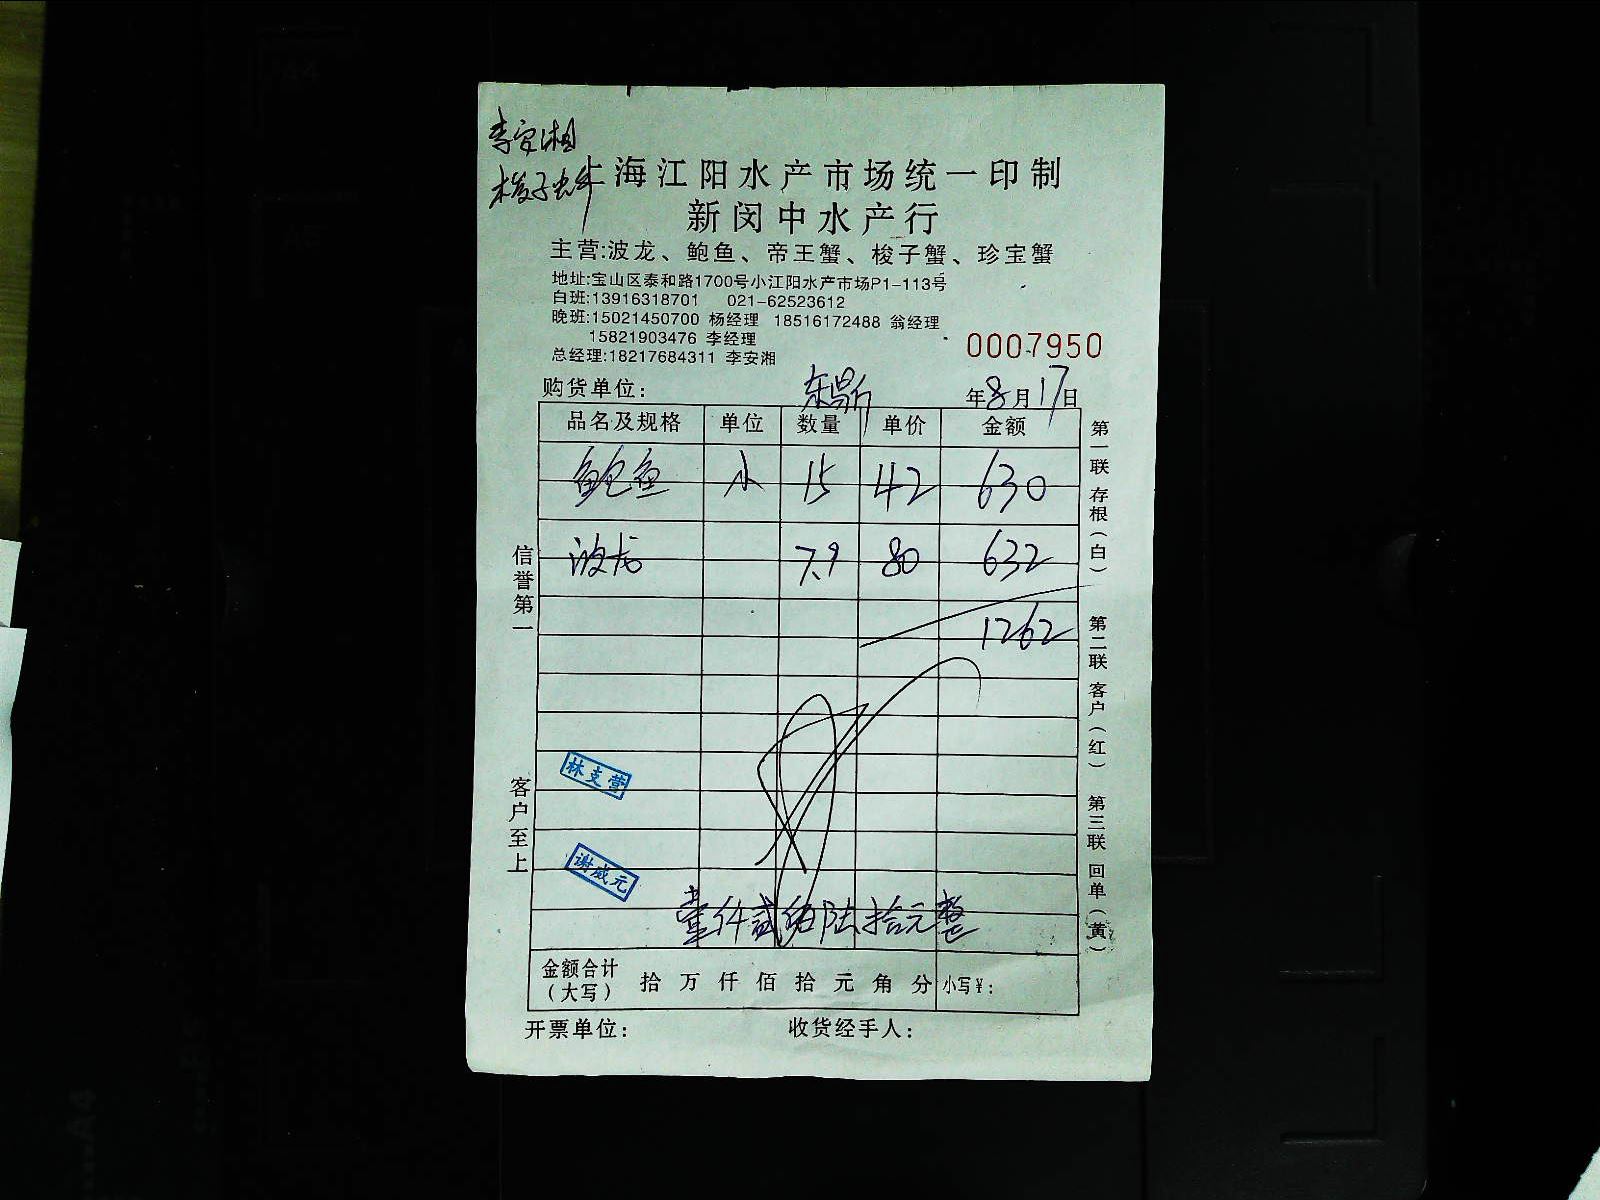 李安湘
梭子蟹
上海江阳水产市场统一印制
新闵中水产行
主营:波龙、鲍鱼、帝王蟹、梭子蟹、珍宝蟹
地址:宝山区泰和路1700号小江阳水产市场P1-113号
白班:13916318701 021-62523612
晚班:15021450700 杨经理 18516172488 翁经理
15821903476 李经理
总经理:18217684311 李安湘
0007950
购货单位: 年8月17日
品名及规格 单位 数量 单价 金额
鲍鱼 小 15 42 630
波龙 7.9 80 632
1262
林支营
谢咸元
壹仟贰佰陆拾元整
金额合计(大写) 拾 万 仟 佰 拾 元 角 分 小写¥:
开票单位: 收货经手人:
信誉第一
客户至上
第一联 存根(白)
第二联 客户(红)
第三联 回单(黄)